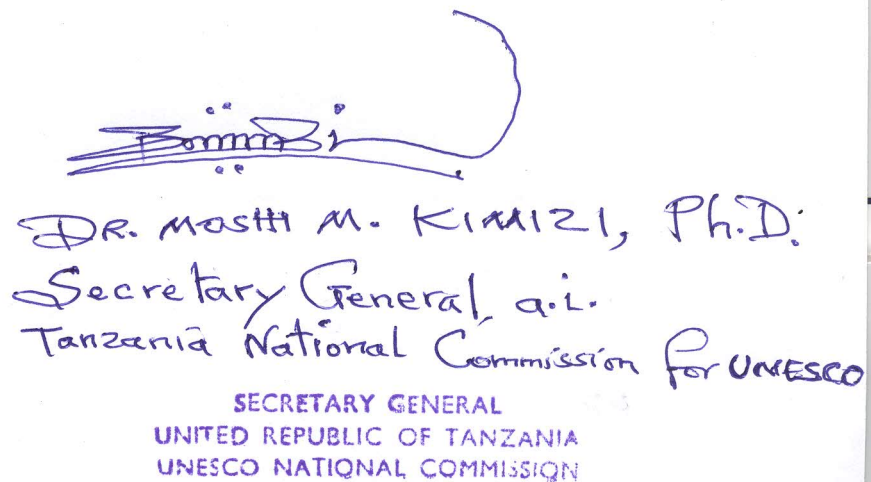 DR. MOSHI M. KIMIZI, Ph.D.
Secretary General, a.i.
Tanzania National Commission for UNESCO
SECRETARY GENERAL
UNITED REPUBLIC OF TANZANIA
UNESCO NATIONAL COMMISSION